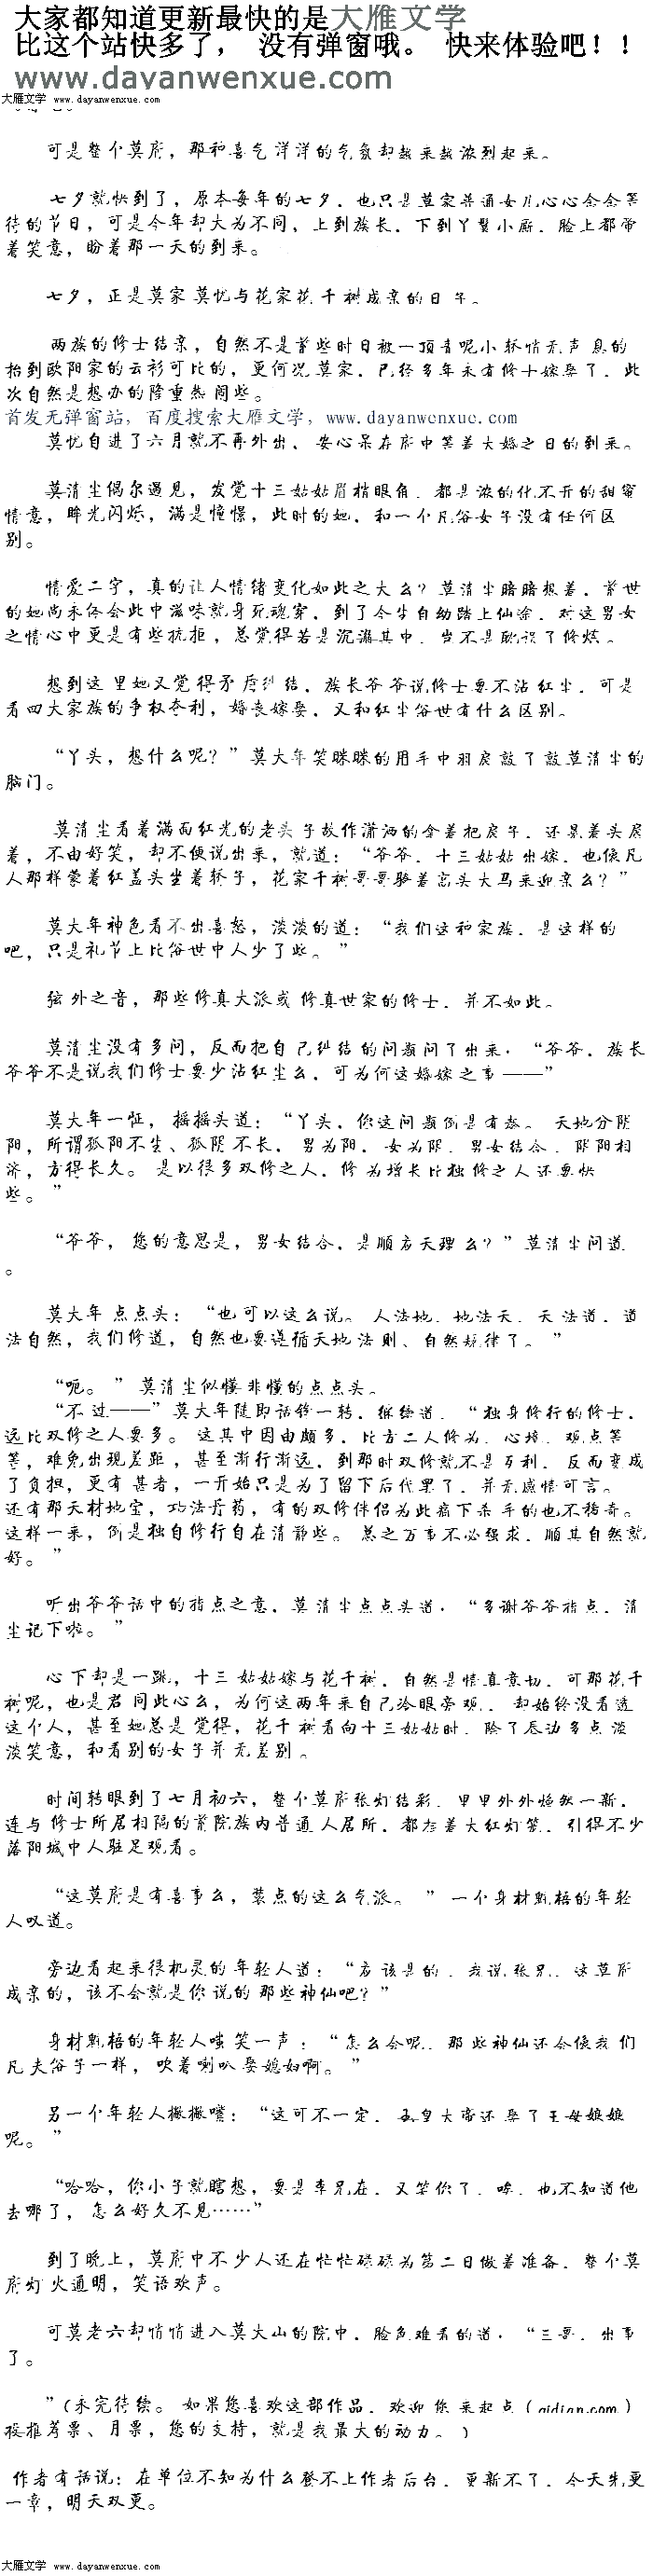 大家都知道更新最快的是大雁文学
比这个站快多了， 没有弹窗哦。 快来体验吧！！
www.dayanwenxue.com
大雁文学 www.dayanwenxue.com
可是整个莫府，那种喜气洋洋的气氛却越来越浓烈起来。
七夕就快到了，原本每年的七夕，也只是莫家普通女儿心心念念等
待的节日，可是今年却大为不同，上到族长，下到丫鬟小厮，脸上都带
着笑意，盼着那一天的到来。
七夕，正是莫家莫忧与花家花千树成亲的日子。
两族的修士结亲，自然不是前些时日被一顶青呢小轿悄无声息的
抬到欧阳家的云衫可比的，更何况莫家，已经多年未有修士嫁娶了，此
次自然是想办的隆重热闹些。
首发无弹窗站，百度搜索大雁文学，www.dayanwenxue.com
莫忧自进了六月就不再外出，安心呆在府中等着大婚之日的到来。
莫清尘偶尔遇见，发觉十三姑姑眉梢眼角，都是浓的化不开的甜蜜
情意，眸光闪烁，满是憧憬，此时的她，和一个凡俗女子没有任何区
别。
情爱二字，真的让人情绪变化如此之大么？莫清尘暗暗想着，前世
的她尚未体会此中滋味就身死魂穿，到了今生自幼踏上仙途，对这男女
之情心中更是有些抗拒，总觉得若是沉溺其中，岂不是耽误了修炼。
想到这里她又觉得矛盾纠结，族长爷爷说修士要不沾红尘，可是
看四大家族的争权夺利，婚丧嫁娶，又和红尘俗世有什么区别。
“丫头，想什么呢？”莫大年笑眯眯的用手中羽扇敲了敲莫清尘的
脑门。
莫清尘看着满面红光的老头子故作潇洒的拿着把扇子，还是羞头扇
着，不由好笑，却不便说出来，就道：“爷爷，十三姑姑出嫁，也像凡
人那样蒙着红盖头坐着轿子，花家千树哥哥骑着高头大马来迎亲么？”
莫大年神色看不出喜怒，淡淡的道：“我们这种家族，是这样的
吧，只是礼节上比俗世中人少了些。”
弦外之音，那些修真大派或修真世家的修士，并不如此。
莫清尘没有多问，反而把自己纠结的问题问了出来，“爷爷，族长
爷爷不是说我们修士要少沾红尘么，可为何这婚嫁之事——”
莫大年一怔，摇摇头道：“丫头，你这问题倒是有趣。 天地分阴
阳，所谓孤阳不生、孤阴不长，男为阳，女为阴，男女结合，阴阳相
济，方得长久。 是以很多双修之人，修为增长比独修之人还要快
些。”
“爷爷，您的意思是，男女结合，是顺应天理么？”莫清尘问道
。
莫大年点点头：“也可以这么说。 人法地，地法天，天法道，道
法自然，我们修道，自然也要遵循天地法则、自然规律了。”
“呃。”莫清尘似懂非懂的点点头。
“不过——”莫大年随即话锋一转，继续道，“独身修行的修士，
远比双修之人要多。 这其中因由颇多，比方二人修为、心境、观点等
等，难免出现差距，甚至渐行渐远，到那时双修就不是互利，反而变成
了负担，更有甚者，一开始只是为了留下后代罢了，并无感情可言。
还有那天材地宝，功法丹药，有的双修伴侣为此痛下杀手的也不稀奇。
这样一来，倒是独自修行自在清静些。 总之万事不必强求，顺其自然就
好。”
听出爷爷话中的指点之意，莫清尘点点头道，“多谢爷爷指点，清
尘记下啦。”
心下却是一跳，十三姑姑嫁与花千树，自然是情真意切，可那花千
树呢，也是君同此心么，为何这两年来自己冷眼旁观，却始终没看透
这个人，甚至她总是觉得，花千树看向十三姑姑时，除了唇边多点淡
淡笑意，和看别的女子并无差别。
时间转眼到了七月初六，整个莫府张灯结彩，里里外外焕然一新，
连与修士所居相隔的前院族内普通人居所，都挂着大红灯笼，引得不少
落阳城中人驻足观看。
“这莫府是有喜事么，装点的这么气派。”一个身材魁梧的年轻
人叹道。
旁边看起来很机灵的年轻人道：“应该是的，我说张兄，这莫府
成亲的，该不会就是你说的那些神仙吧？”
身材魁梧的年轻人嗤笑一声：“怎么会呢，那些神仙还会像我们
凡夫俗子一样，吹着喇叭娶媳妇啊。”
另一个年轻人撇撇嘴：“这可不一定，玉皇大帝还娶了王母娘娘
呢。”
“哈哈，你小子就瞎想，要是李兄在，又笑你了，唉，也不知道他
去哪了，怎么好久不见……”
到了晚上，莫府中不少人还在忙忙碌碌为第二日做着准备，整个莫
府灯火通明，笑语欢声。
可莫老六却悄悄进入莫大山的院中，脸色难看的道，“三哥，出事
了。
”（未完待续。 如果您喜欢这部作品，欢迎您来起点（qidian.com）
投推荐票、月票，您的支持，就是我最大的动力。）
作者有话说：在单位不知为什么登不上作者后台，更新不了，今天先更
一章，明天双更。
大雁文学 www.dayanwenxue.com